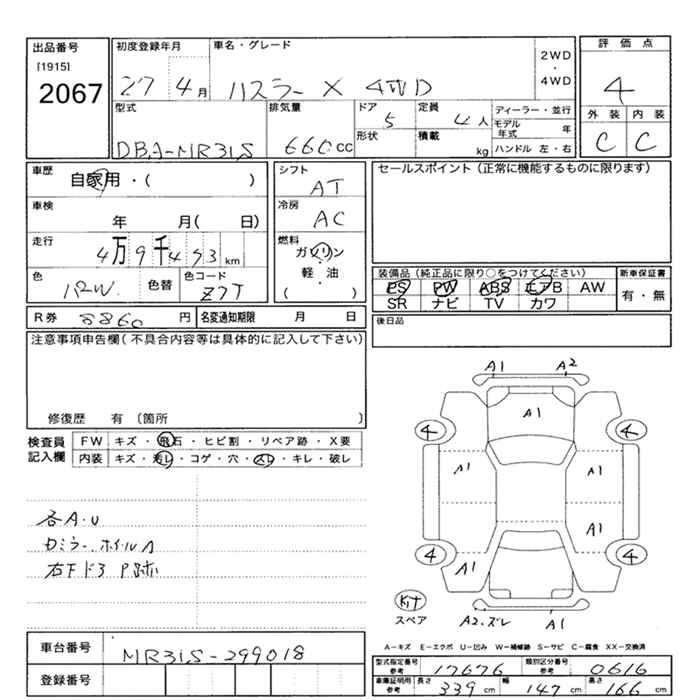 出品番号 初度登録年月 車名・グレード 評価点
[1915] 2WD・4WD
2067 27 4月 ハスラー X 4WD 4
型式 排気量 ドア 5 定員 4人 ディーラー・並行 外装 内装
モデル年式 年
DBA-MR31S 660cc 形状 積載 kg ハンドル 左・右 C C
車歴 自家用・( ) シフト AT セールスポイント(正常に機能するものに限ります)
車検 年 月( 日) 冷房 AC
走行 4万9千493km 燃料 ガソリン
軽・油
( )
色 色替 色コード Z7T
装備品(純正品に限り○をつけてください) 新車保証書
PS PW ABS エアB AW 有・無
SR ナビ TV カワ
R券 8860円 名変通知期限 月 日 後日品
注意事項申告欄(不具合内容等は具体的に記入して下さい)
修復歴 有 〔箇所 〕
検査員記入欄 FW キズ・飛石・ヒビ割・リペア跡・X要
内装 キズ・汚レ・コゲ・穴・スレ・キレ・破レ
A1 A2
A1
4 4
A1 A1
各A・U
カミラー、ホイルA A1
右下ドミ P跡 4 4
A1
Kit
スペア A2.ズレ A1
A-キズ E-エクボ U-凹み W-補修跡 S-サビ C-腐食 XX-交換済
車台番号 MR31S-299018
型式指定番号 参考 17676 類別区分番号 参考 0616
登録番号 車庫証明用 参考 長さ 339cm 幅 147cm 高さ 166cm